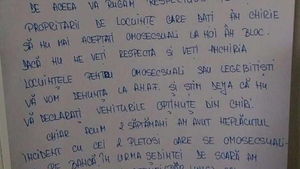 DE ACEEA VĂ RUGĂM RESPECTUOS
PROPRITARII DE LOCUINTE CARE DATI ÎN CHIRIE
SĂ NU MAI ACEPTATI OMOSECSUALI LA NOI ÎN BLOC.
DACĂ NU NE VETI RESPECTA SI VETI ÎNCHIRIA
LOCUINȚELE PENTRU OMOSECSUALI SAU LEGEBITIȘTI
VĂ VOM DENUNȚA LA A.N.A.F. ȘI ȘTIM DEJA CĂ NU
VĂ DECLARAȚI VENITURILE OPȚINUTE DIN CHIRI.
CHIAR ACUM 2 SĂPTĂMÂNI AM AVUT NEPLĂCUTUL
INCIDENT CU CEI 2 PLETOSI CARE SE OMOSECSUALI-
PE BANCĂ ÎN URMA SEDINTEI DE SOARĂ AM